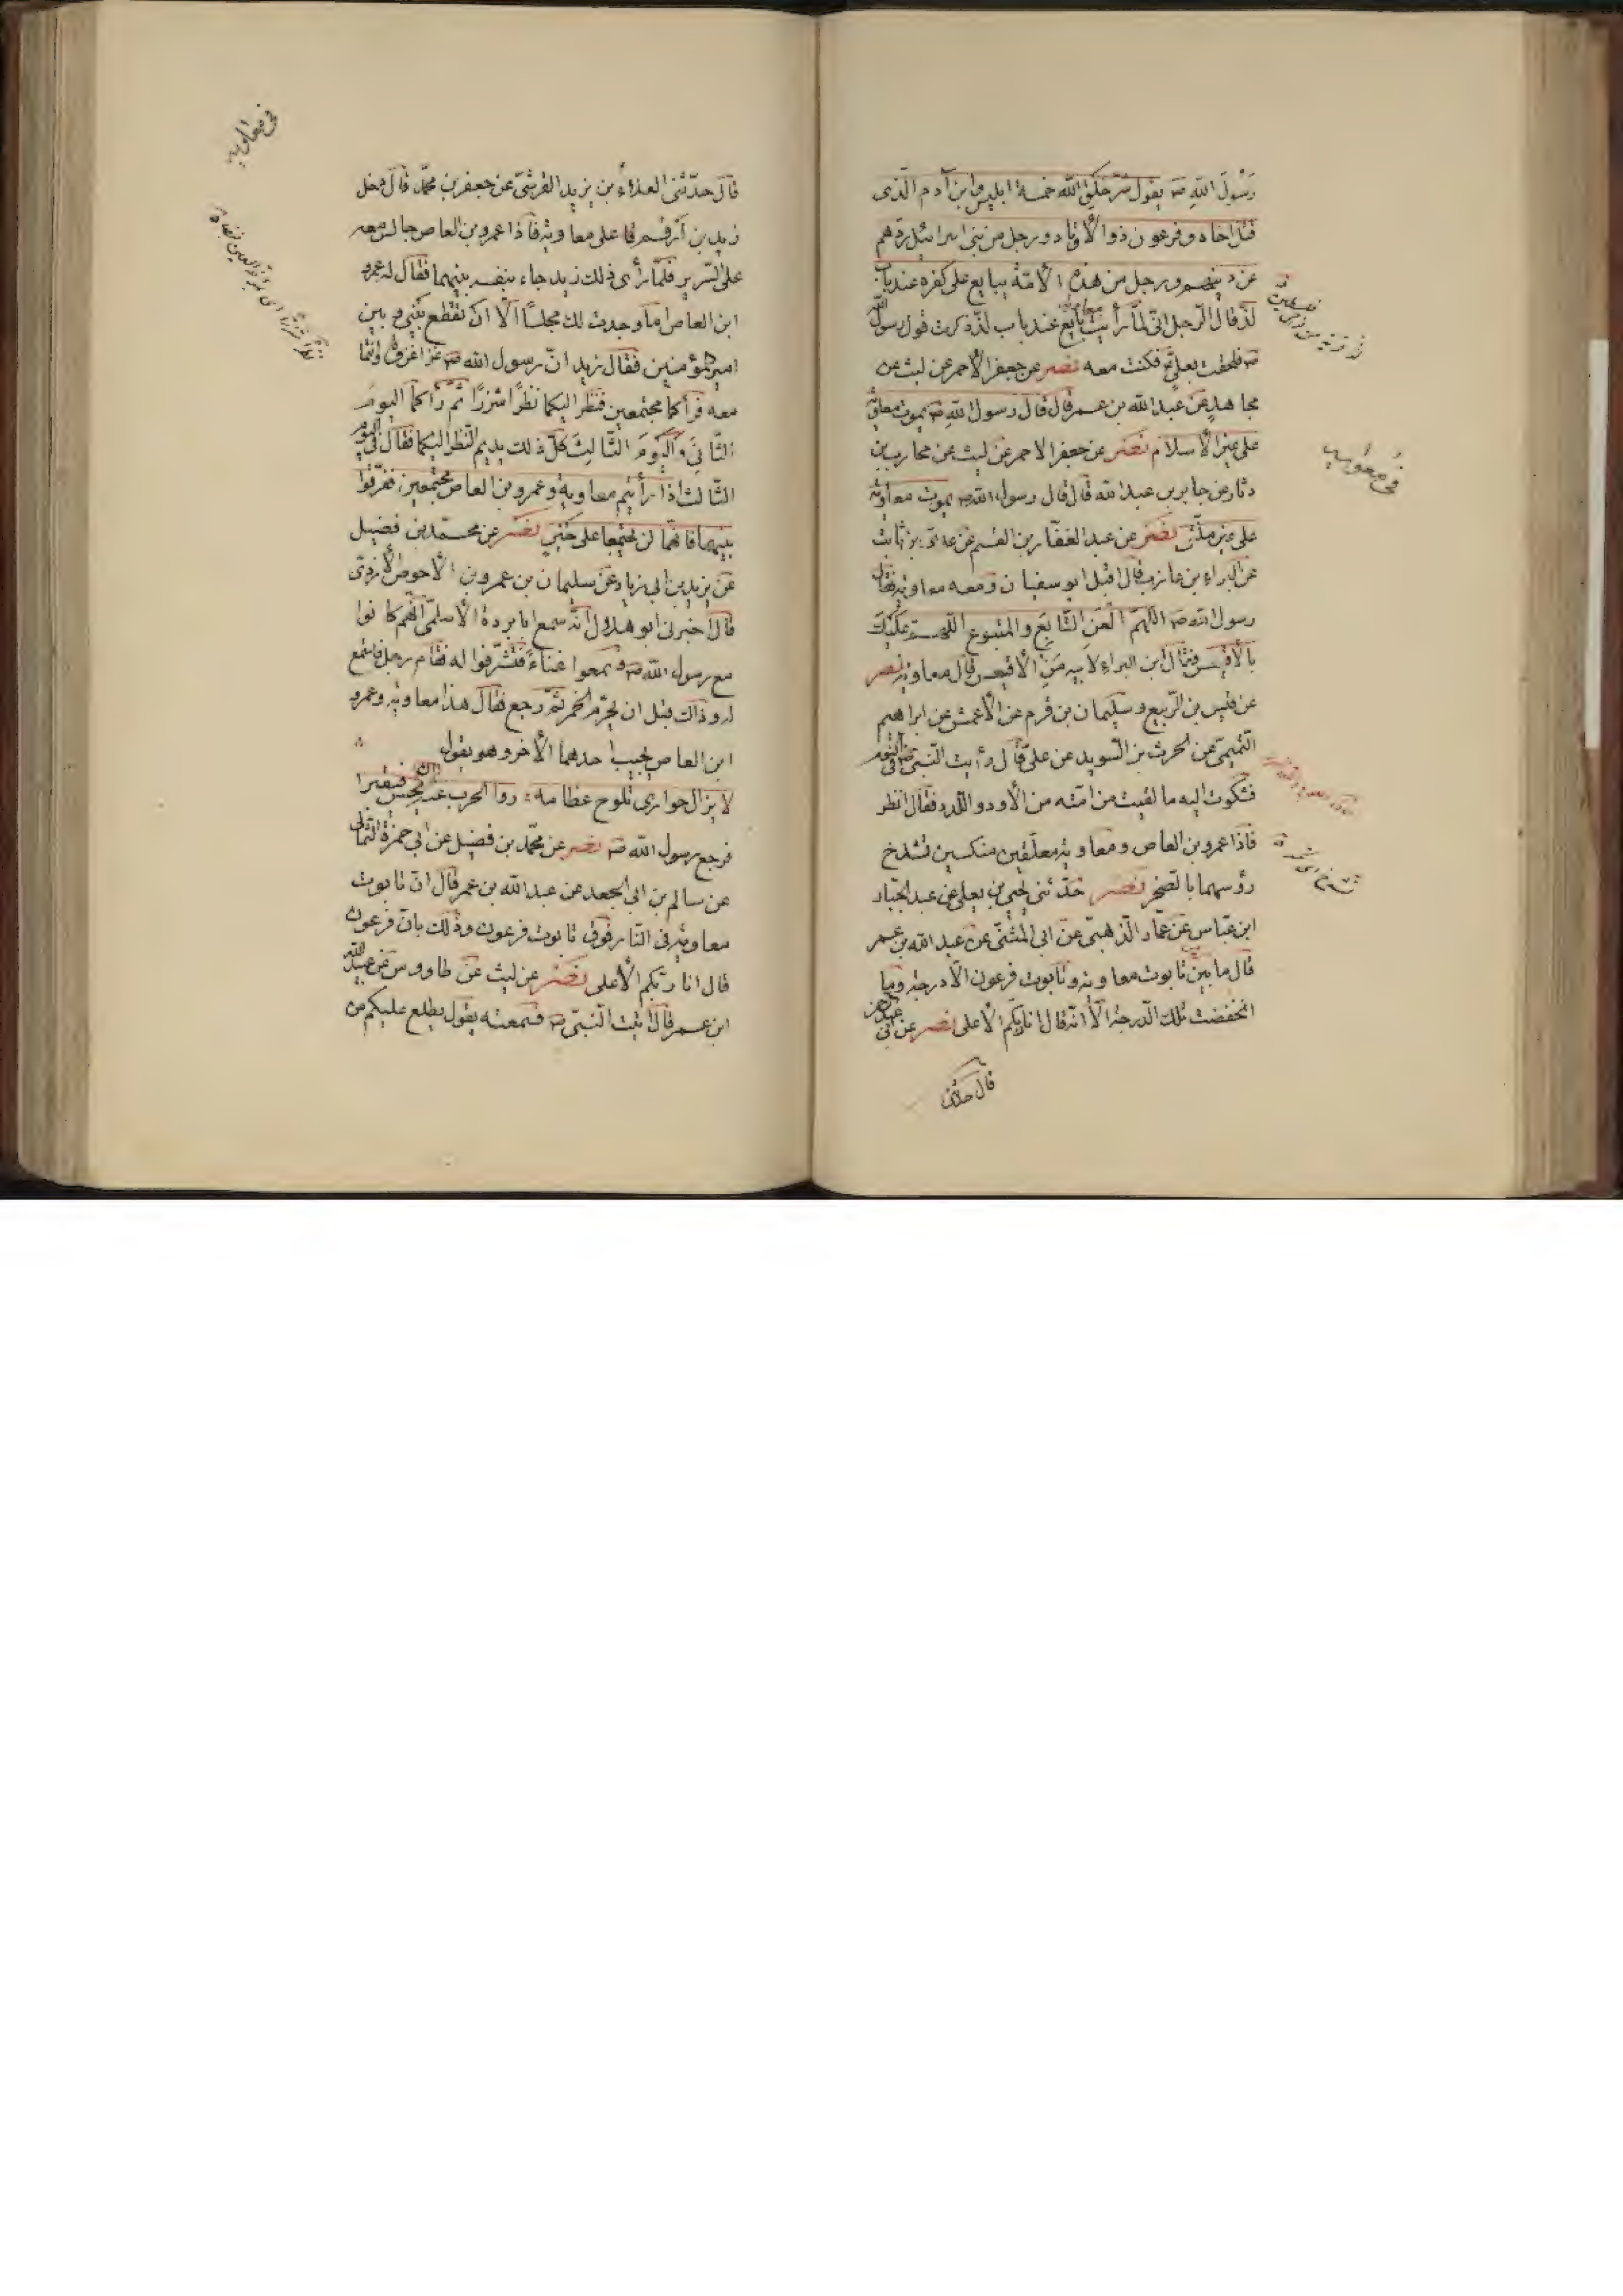 رسول الله صه يقول شر خلق الله خمسة ابليس وابن آدم الذى
قتل اخاه وفرعون ذو الأوتاد ورجل من بنى اسرائيل ردهم
عن دينهم ورجل من هذه الأمة يبايع على كفره عند باب
لد قال الرجل انى لما رأيت معاوية بايع عند باب لد ذكرت قول رسول الله
صه فلحقت بعلى فكنت معه نصر عن جعفر الأحمر عن ليث عن
مجاهد عن عبد الله بن عمر قال قال رسول الله صه يموت معاوية
على غير الأسلام نصر عن جعفر الاحمر عن ليث عن محارب بن
دثار عن جابر بن عبد الله قال قال رسول الله صه يموت معاوية
على غير ملتى نصر عن عبد الغفار بن القسم عن عدى بن ثابت
عن البراء بن عازب قال اقبل ابو سفيان ومعه معاوية فقال
رسول الله صه اللهم العن التابع والمتبوع اللهم عليك
بالأقيعس فقال ابن البراء لابيه من الأقيعس قال معاوية نصر
عن قيس بن الربيع وسليمان بن قرم عن الأعمش عن ابراهيم
التميمى عن الحرث بن السويد عن على قال رأيت النبى صه فى النوم
فشكوت اليه ما لقيت من امته من الأود واللدد فقال انظر
فاذا عمرو بن العاص ومعاوية معلقين منكسين تشدخ
رؤسهما بالصخر نصر حدثنى يحيى بن يعلى عن عبد الجبار
ابن عباس عن عمار الذهبى عن ابى المثنى عن عبد الله بن عمر
قال ما بين تابوت معاوية وتابوت فرعون الا درجة وما
انخفضت تلك الدرجة الا انه قال انا ربكم الأعلى نصر عن ابى
قال حدثنى
فى معاويه
قال حدثنى العلاء بن يزيد القرشى عن جعفر بن محمد قال دخل
زيد بن أرقم على معاوية فاذا عمرو بن العاص جالس معه
على السرير فلما رأى ذلك زيد جاء بنفسه بينهما فقال له عمرو
ابن العاص اما وجدت لك مجلسا الا ان تقطع بينى وبين
امير المؤمنين فقال زيد ان رسول الله صه غزا غزوة وانتما
معه فرآكما مجتمعين فنظر اليكما نظرا شزرا ثم رآكما اليوم
الثانى واليوم الثالث كل ذلك يديم النظر اليكما فقال فى اليوم
الثالث اذا رأيتم معاوية وعمرو بن العاص مجتمعين ففرقوا
بينهما فانهما لن يجتمعا على خير نصر عن محمد بن فضيل
عن يزيد بن ابى زياد عن سليمان بن عمرو بن الأحوص الأزدى
قال اخبرنى ابو هلال انه سمع ابا بردة الأسلمى انهم كانوا
مع رسول الله صه فسمعوا غناء فتشرفوا له فقام رجل فاستمع
له وذاك قبل ان يحرم الخمر ثم رجع فقال هذا معاوية وعمرو
ابن العاص يجيب احدهما الأخر وهو يقول
لا يزال حوارى تلوح عظامه روا الحرب عنه ان يحس فيقبرا
فرجع رسول الله صه نصر عن محمد بن فضيل عن ابى حمزة الثمالى
عن سالم بن ابى الجعد عن عبد الله بن عمر قال ان تابوت
معاوية فى النار فوق تابوت فرعون وذلك بان فرعون
قال انا ربكم الأعلى نصر عن ليث عن طاووس عن عبد الله
ابن عمر قال اتيت النبى صه فسمعته يقول يطلع عليكم من
فى معاويه